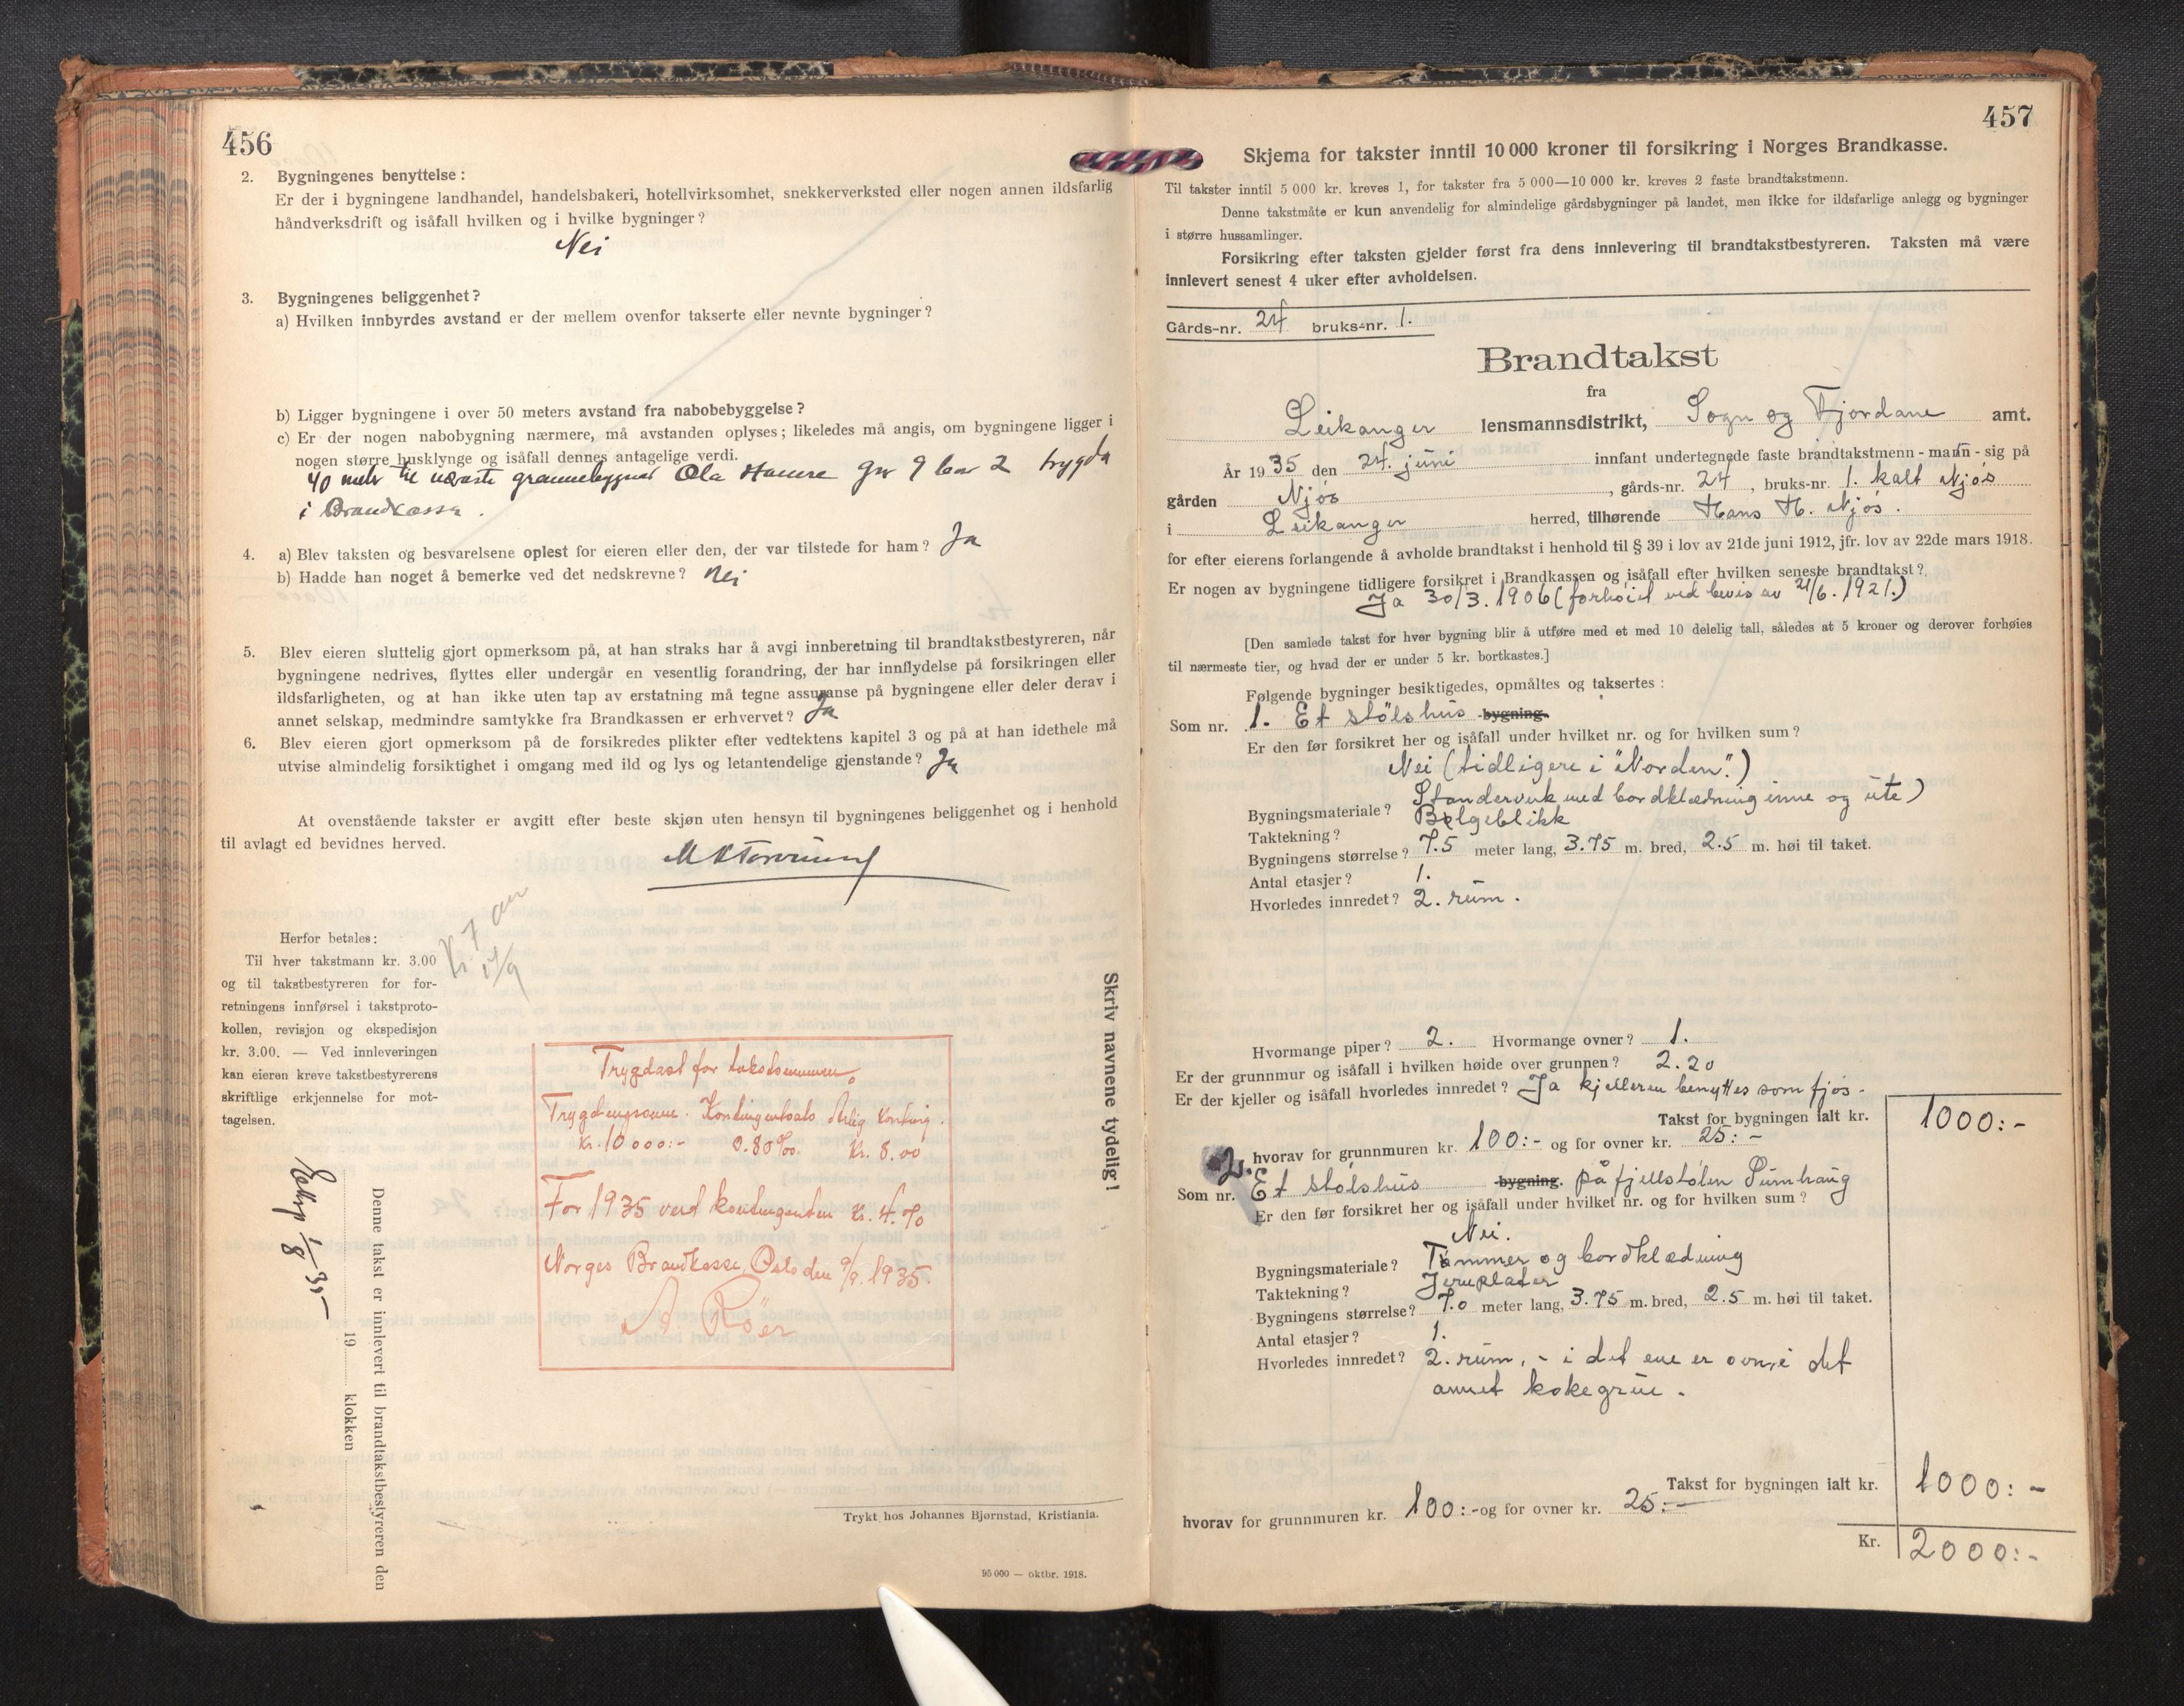 456
2. Bygningenes benyttelse:
Er der i bygningene landhandel, handelsbakeri, hotellvirksomhet, snekkerverksted eller nogen annen ildsfarlig
håndverksdrift og isåfall hvilken og i hvilke bygninger?
Nei
3. Bygningenes beliggenhet?
a) Hvilken innbyrdes avstand er der mellem ovenfor takserte eller nevnte bygninger?
b) Ligger bygningene i over 50 meters avstand fra nabobebyggelse?
c) Er der nogen nabobygning nærmere, må avstanden oplyses; likeledes må angis, om bygningene ligger i
nogen større husklynge og isåfall dennes antagelige verdi.
40 meter til næraste grannebygnad Ola Hamre gnr 9 bnr 2 trygda
i Brandkassa.
4. a) Blev taksten og besvarelsene oplest for eieren eller den, der var tilstede for ham? Ja
b) Hadde han noget å bemerke ved det nedskrevne? Nei
5. Blev eieren sluttelig gjort opmerksom på, at han straks har å avgi innberetning til brandtakstbestyreren, når
bygningene nedrives, flyttes eller undergår en vesentlig forandring, der har innflydelse på forsikringen eller
ildsfarligheten, og at han ikke uten tap av erstatning må tegne assuranse på bygningene eller deler derav i
annet selskap, medmindre samtykke fra Brandkassen er erhvervet? Ja
6. Blev eieren gjort opmerksom på de forsikredes plikter efter vedtektens kapitel 3 og på at han idethele må
utvise almindelig forsiktighet i omgang med ild og lys og letantendelige gjenstande? Ja
At ovenstående takster er avgitt efter beste skjøn uten hensyn til bygningenes beliggenhet og i henhold
til avlagt ed bevidnes herved.
Herfor betales:
Til hver takstmann kr. 3.00
og til takstbestyreren for for-
retningens innførsel i takstproto-
kollen, revisjon og ekspedisjon
kr. 3.00. — Ved innleveringen
kan eieren kreve takstbestyrerens
skriftlige erkjennelse for mot-
tagelsen.
Trygdast for takstsummen.
Trygdingssum. Kontingentsats Årlig Konting.
Kr. 10000:- 0.80‰ Kr. 8.00
For 1935 verd kontingenten Kr. 4.70
Norges Brandkasse, Oslo den 9/9. 1935
A. Röer
Skriv navnene tydelig!
Denne takst er innlevert til brandtakstbestyreren den
19 klokken
Eksp 1/8 35
Trykt hos Johannes Bjørnstad, Kristiania.
95 000 — oktbr. 1918.
457
Skjema for takster inntil 10 000 kroner til forsikring i Norges Brandkasse.
Til takster inntil 5 000 kr. kreves 1, for takster fra 5 000—10 000 kr. kreves 2 faste brandtakstmenn.
Denne takstmåte er kun anvendelig for almindelige gårdsbygninger på landet, men ikke for ildsfarlige anlegg og bygninger
i større hussamlinger.
Forsikring efter taksten gjelder først fra dens innlevering til brandtakstbestyreren. Taksten må være
innlevert senest 4 uker efter avholdelsen.
Gårds-nr. 24 bruks-nr. 1.
Brandtakst
fra
Leikanger lensmannsdistrikt, Sogn og Fjordane amt.
År 1935 den 24. juni innfant undertegnede faste brandtakstmenn - mann - sig på
gården Njøs, gårds-nr. 24, bruks-nr. 1. kalt Njøs
i Leikanger herred, tilhørende Hans H. Njøs.
for efter eierens forlangende å avholde brandtakst i henhold til § 39 i lov av 21de juni 1912, jfr. lov av 22de mars 1918.
Er nogen av bygningene tidligere forsikret i Brandkassen og isåfall efter hvilken seneste brandtakst?
Ja 30/3. 1906 (forhøiet ved bevis av 21/6. 1921.)
[Den samlede takst for hver bygning blir å utføre med et med 10 delelig tall, således at 5 kroner og derover forhøies
til nærmeste tier, og hvad der er under 5 kr. bortkastes.]
Følgende bygninger besiktigedes, opmåltes og taksertes:
Som nr. 1. Et stølshus bygning.
Er den før forsikret her og isåfall under hvilket nr. og for hvilken sum?
Nei (tidligere i "Norden".)
Bygningsmateriale? Standerverk med bordklædning inne og ute)
Taktekning? Bølgeblikk
Bygningens størrelse? 7.5 meter lang, 3.75 m. bred, 2.5 m. høi til taket.
Antal etasjer? 1.
Hvorledes innredet? 2. rum.
Hvormange piper? 2. Hvormange ovner? 1.
Er der grunnmur og isåfall i hvilken høide over grunnen? 2.20
Er der kjeller og isåfall hvorledes innredet? Ja kjelleren benyttes som fjøs.
Takst for bygningen ialt kr. 1000:-
hvorav for grunnmuren kr. 100:- og for ovner kr. 25:-
Som nr. 2. Et stølshus bygning. på fjellstølen Sumhaug
Er den før forsikret her og isåfall under hvilket nr. og for hvilken sum?
Nei.
Bygningsmateriale? Tømmer og bordklædning
Taktekning? Jernplater
Bygningens størrelse? 7.0 meter lang, 3.75 m. bred, 2.5 m. høi til taket.
Antal etasjer? 1.
Hvorledes innredet? 2. rum, - i det ene er ovn, i det
annet kokegrue.
Takst for bygningen ialt kr. 1000:-
hvorav for grunnmuren kr. 100:- og for ovner kr. 25:-
Kr. 2000:-